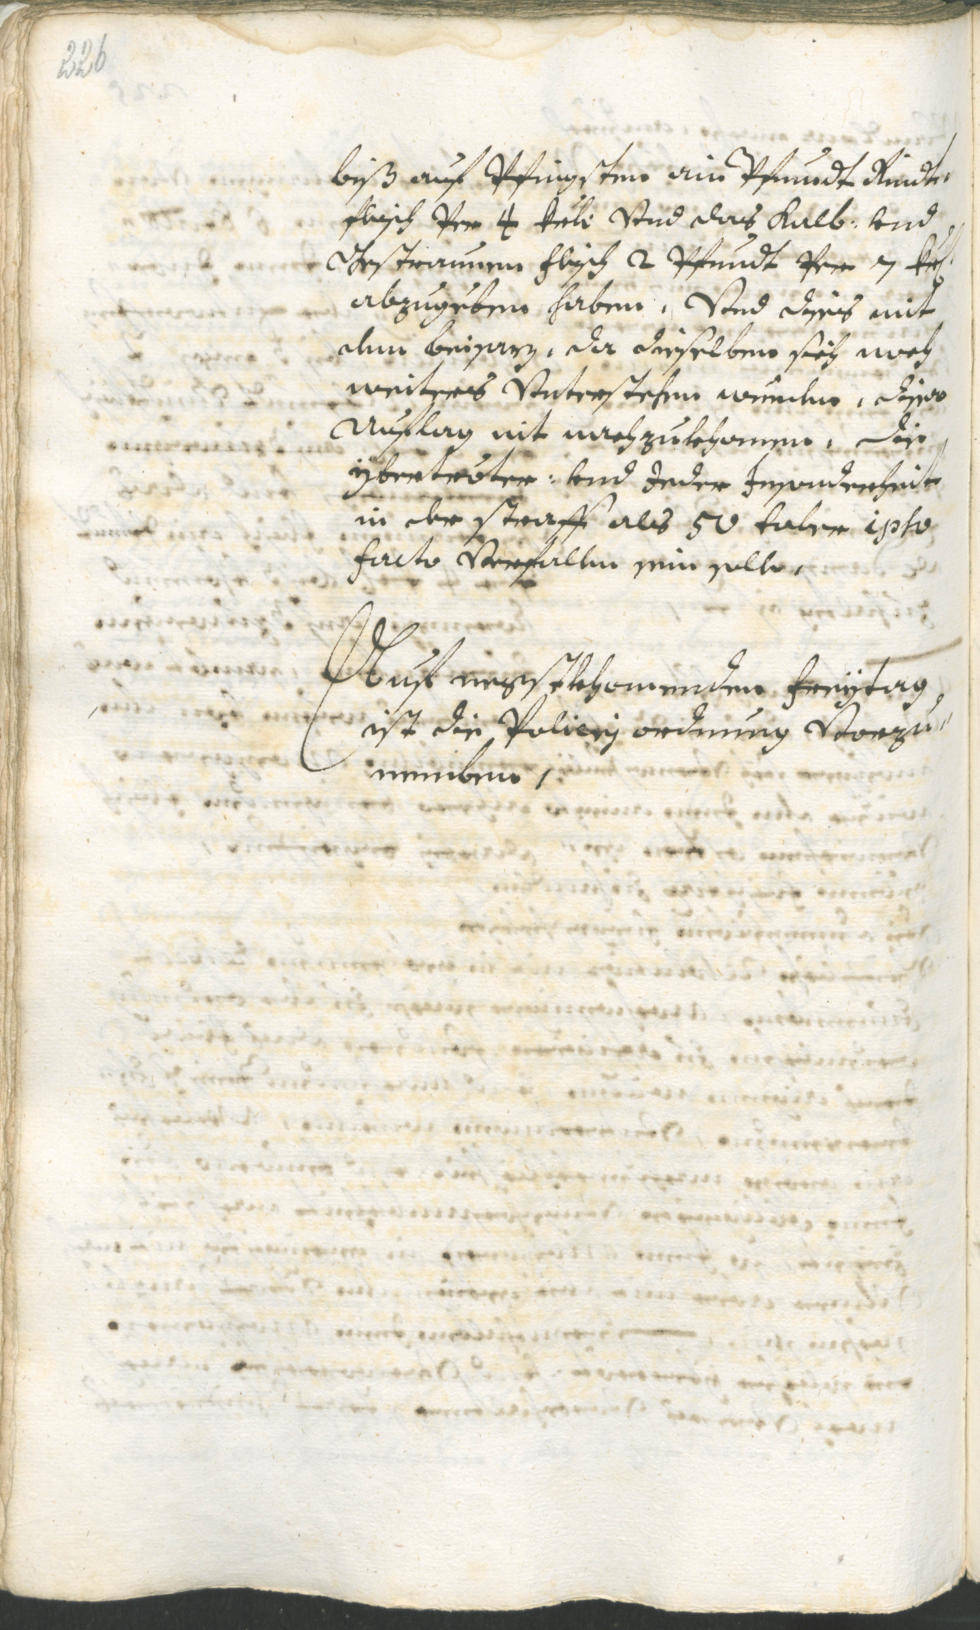 226
biß auf Pfingsten ain Pfundt Rindt„
flejsch Per 4 kr: Vnd das Kalb: vnd
Gestraunen flejsch 2 Pfundt Per 7 kr:
abzugeben haben, Vnd dises mit
dem beisaz, da dieselben sich noch
weitters Vnterstehen wurden, diser
Auflag nit nachzukhomen, die
ybertreter: vnd Jeder Jnsonderheit
in der straff als 50 taler ipso
facto Verfallen sein solle,
Auf negstkhomenden Freijtag
ist die Policej ordnung Vorzu„
nemben,